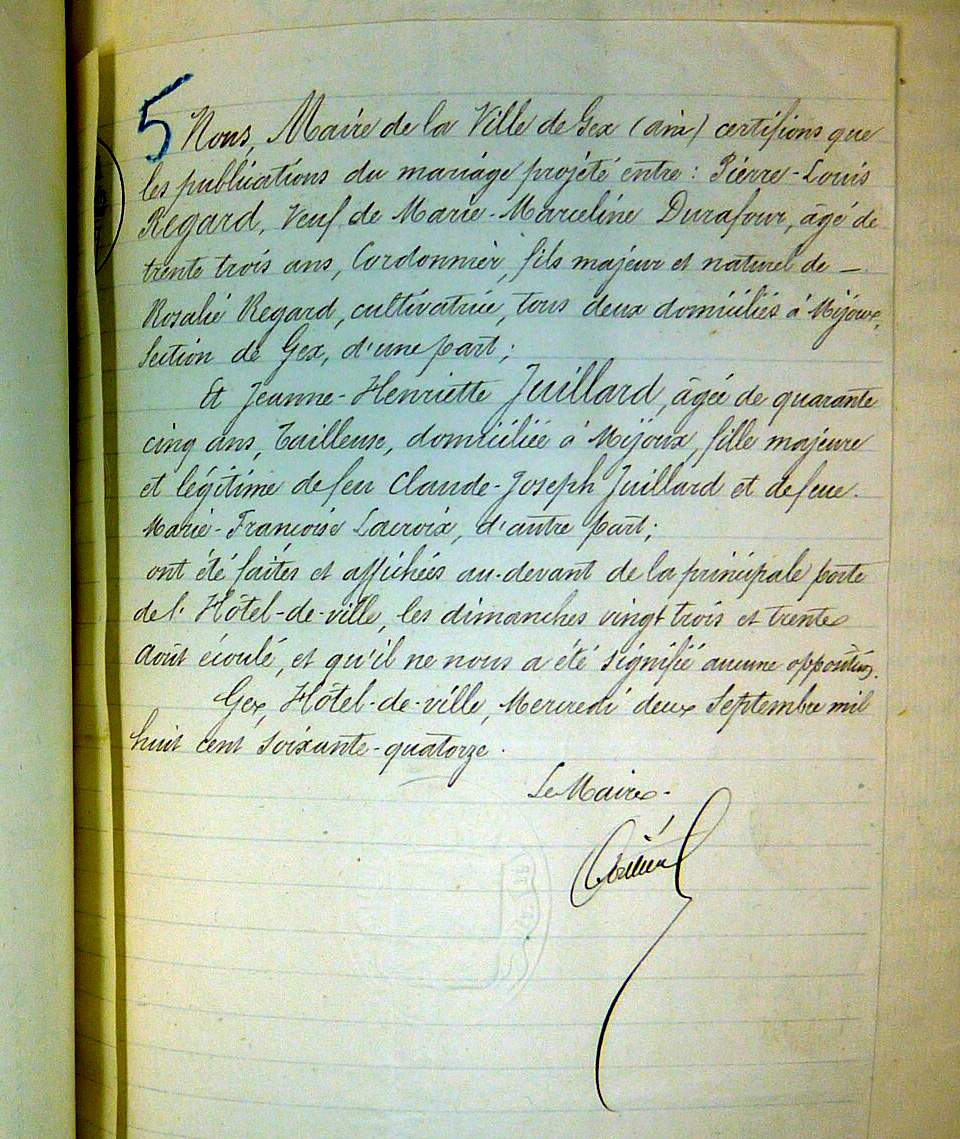 5
Nous, Maire de la Ville de Gex (ain) certifions que
les publications du mariage projété entre : Pierre-Louis
Regard, Veuf de Marie-Marceline Durafour, âgé de
trente trois ans, Cordonnier, fils majeur et naturel de —
Rosalie Regard, cultivatrice, tous deux domiciliés à Mijoux,
Section de Gex, d'une part ;
Et Jeanne-Henriette Juillard, âgée de quarante
cinq ans, Tailleuse, domiciliée à Mijoux, fille majeure
et légitime de feu Claude-Joseph Juillard et de feue
Marie-Françoise Lacroix, d'autre part ;
ont été faites et affichées au-devant de la principale porte
de l'Hôtel-de-ville, les dimanches vingt trois et trente
août écoulé, et qu'il ne nous a été signifié aucune opposition.
Gex, Hôtel-de-ville, Mercredi deux Septembre mil
huit cent soixante-quatorze.
Le Maire